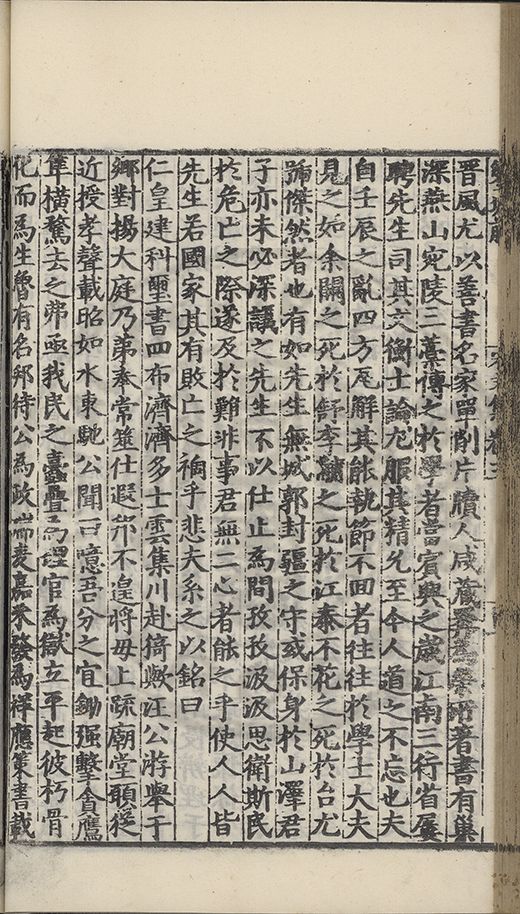 晋風尤以善書名家單削片牘人咸藏弆爲榮所著書有巢
深燕山宛陵三藁傳之於學者當賓興之歲江南三行省屢
聘先生司其文衡士論尤服其精允至今人道之不忘也夫
自壬辰之亂四方瓦解其能執節不回者往往於學士大夫
見之如余闕之死於舒李黼之死於江泰不花之死於台尤
號傑然者也有如先生無城郭封疆之守或保身於山澤君
子亦未必深議之先生不以仕止爲間孜孜汲汲思衛斯民
於危亡之際遂及於難非事君無二心者能之乎使人人皆
先生若國家其有敗亡之禍乎悲夫系之以銘曰
仁皇建科璽書四布濟濟多士雲集川赴猗歟汪公游舉于
鄉對揚大庭乃第奉常筮仕遐邦不遑將母上疏廟堂願從
近授孝聲載昭如水東馳公聞曰噫吾分之宜鋤强擊貪鷹
隼橫騖去之弗亟我民之蠹疊爲理官爲獄立平起彼朽骨
化而爲生魯有名邦待公爲政瑞麥嘉禾發爲祥應策書載